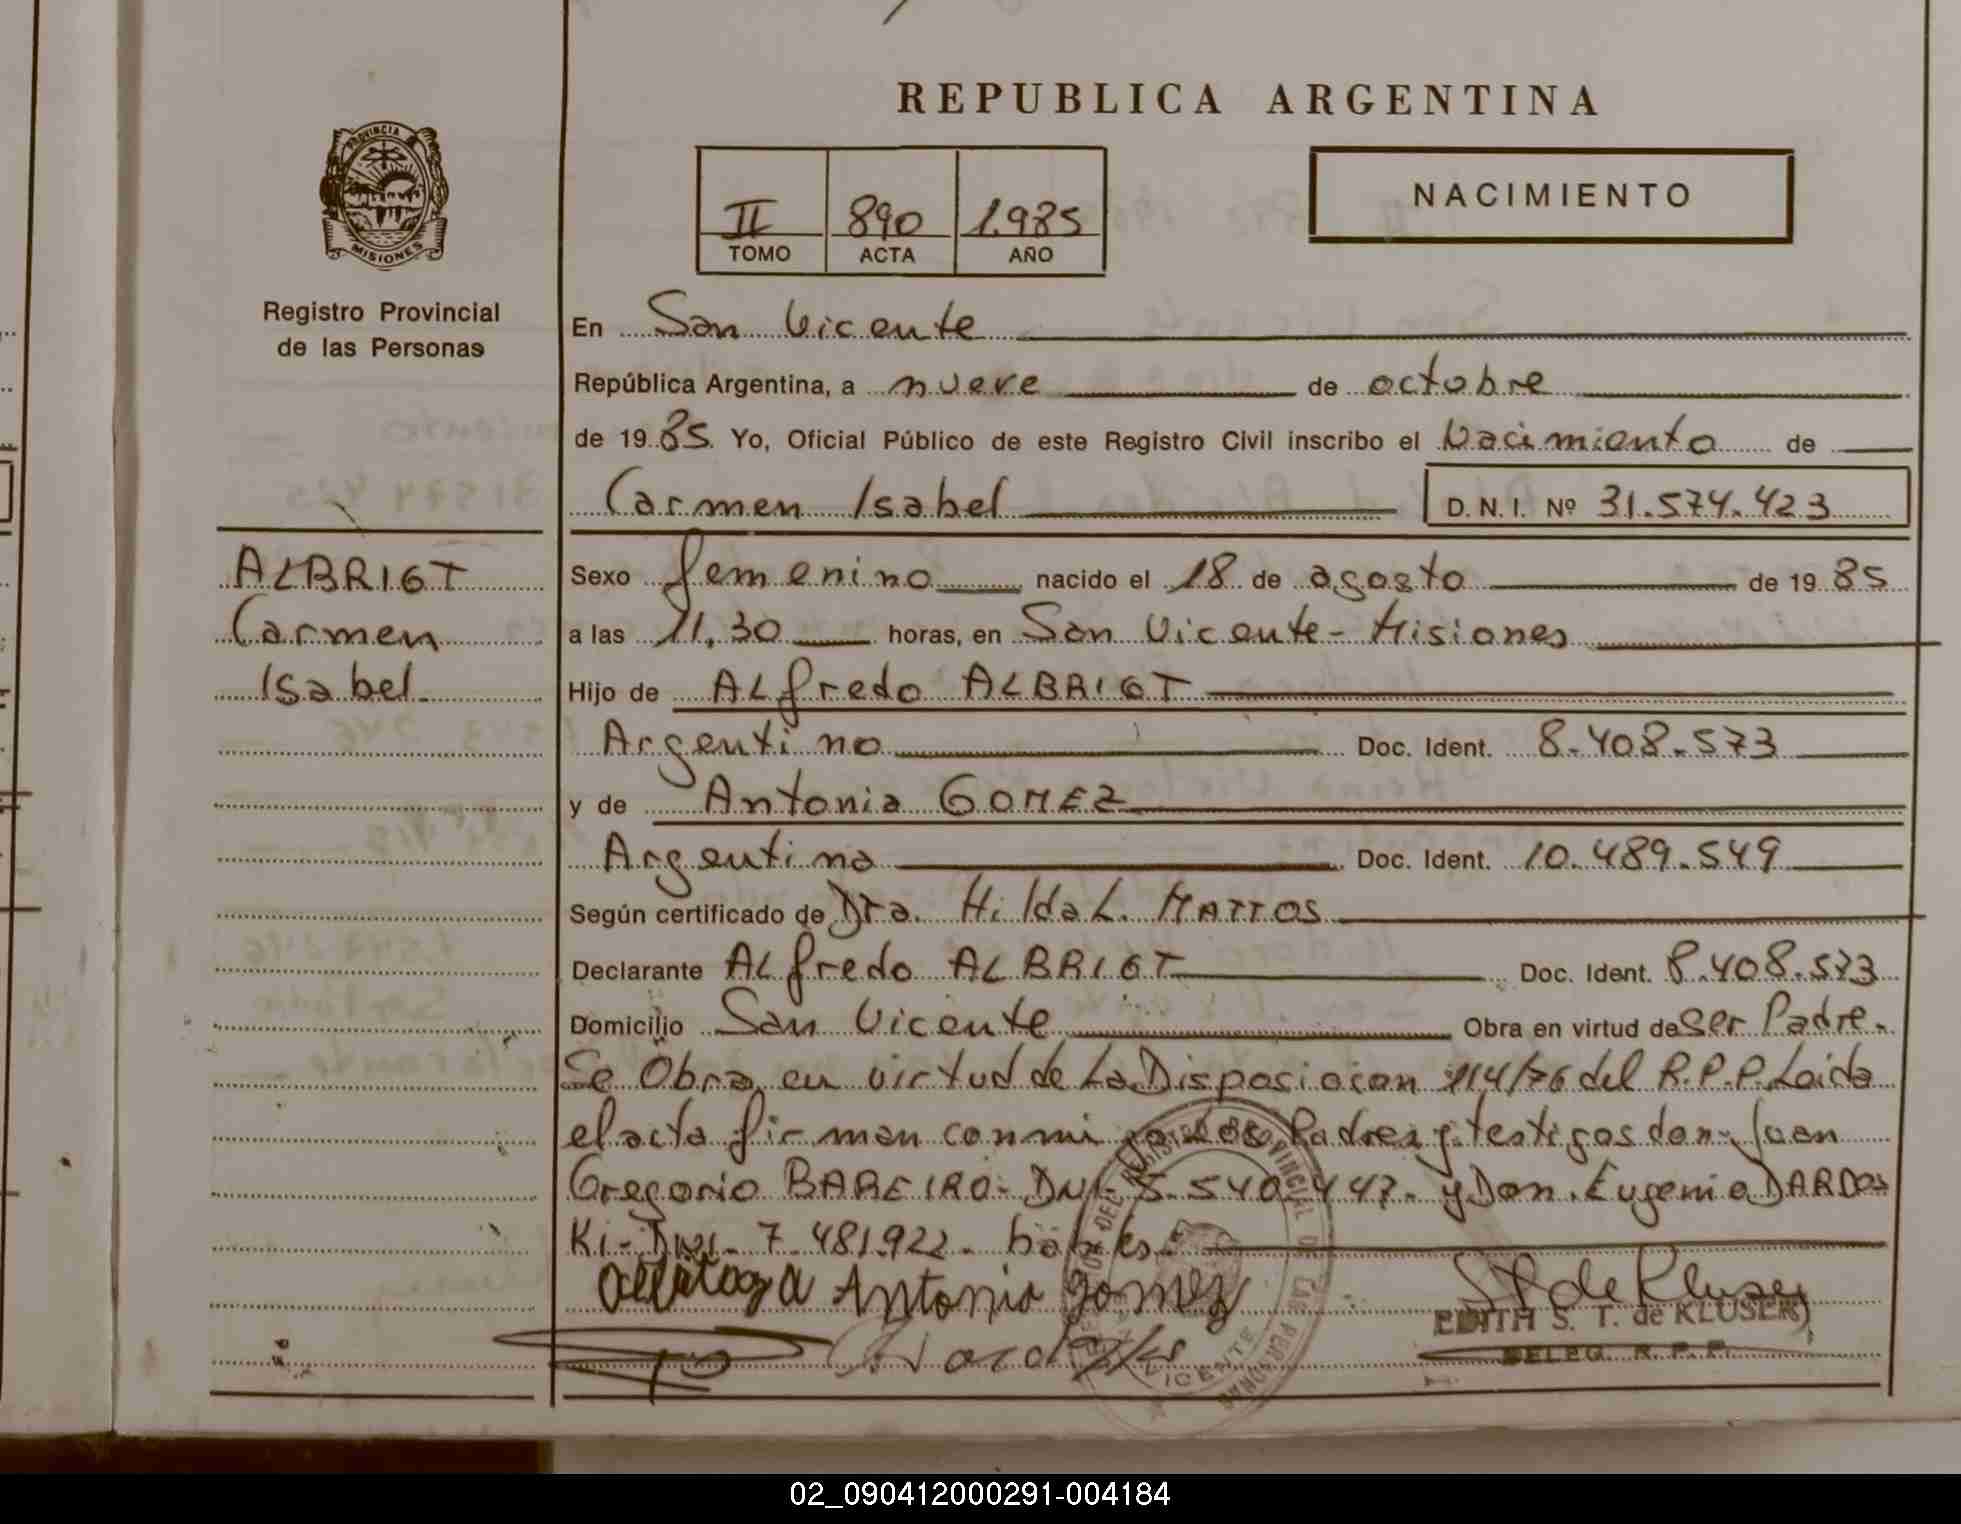 REPUBLICA ARGENTINA
PROVINCIA
MISIONES
Registro Provincial
de las Personas
II 890 1985
TOMO ACTA AÑO
NACIMIENTO
En San Vicente
República Argentina, a nueve de octubre
de 19 85. Yo, Oficial Público de este Registro Civil inscribo el Nacimiento de
Carmen Isabel D. N. I. Nº 31.574.423
ALBRIGT
Carmen
Isabel
Sexo femenino nacido el 18 de agosto de 19 85
a las 11,30 horas, en San Vicente - Misiones
Hijo de ALfredo ALBRIGT
Argentino Doc. Ident. 8.408.573
y de Antonia GOMEZ
Argentina Doc. Ident. 10.489.549
Según certificado de Dra. Hilda L. MATTOS
Declarante ALfredo ALBRIGT Doc. Ident. 8.408.573
Domicilio San Vicente Obra en virtud de Ser Padre.
Se Obra en virtud de La Disposiocon 114/76 del R.P.P. Laida
el acta firman conmigo los Padres y testigos don Juan
Gregorio BAREIRO - DNI- 5.540.447. y Don. Eugenio DARDOS
Ki - DNI- 7.481.922.
Antonia Gomez
EDITH S. T. de KLUSER
DELEG. R. P. P.
VICENTE
02_090412000291-004184